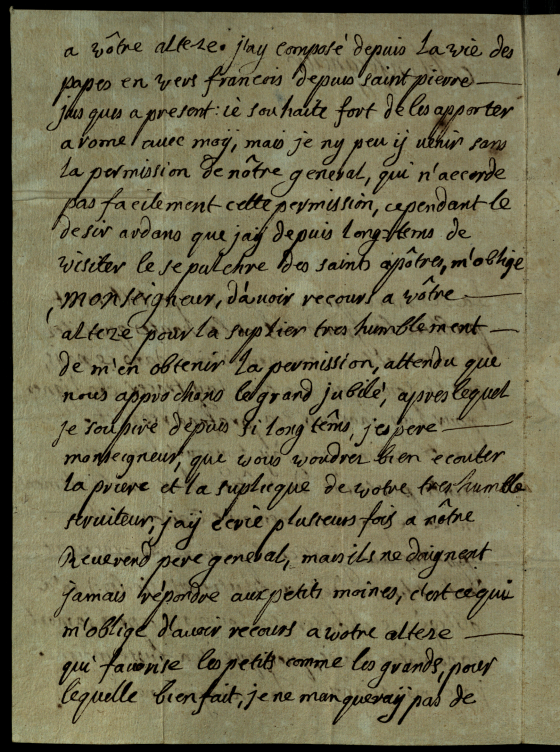 a vôtre alteze. j'ay composé depuis la vie des
papes en vers francois depuis saint pierre
jusques a present: ie souhaite fort de les apporter
a rome avec moÿ, mais je ny peu ij venir sans
la permission de nôtre general, qui n'accorde
pas facilement cette permission, cependant le
desir ardans que jaÿ depuis longtems de
visiter le sepulchre des saints apôtres, m'oblige
, Monseigneur, d'avoir recours a vôtre
alteze pour la suplier tres humblement
de m'en obtenir la permission, attendu que
nous approchons le grand jubilé, apres lequel
je soupire depuis si long têms, j'espere
monseigneur, que vous voudrez bien ecouter
la priere et la suplicque de votre tres humble
serviteur, j'aÿ écrie plusieurs fois a nôtre
Reverend pere general, mais ils ne doignent
jamais répondre aux petits moines, c'est ce qui
m'oblige d'avoir recours a votre alteze
qui favorise les petits comme les grands, pour
lequelle bienfait, je ne manqueraÿ pas de